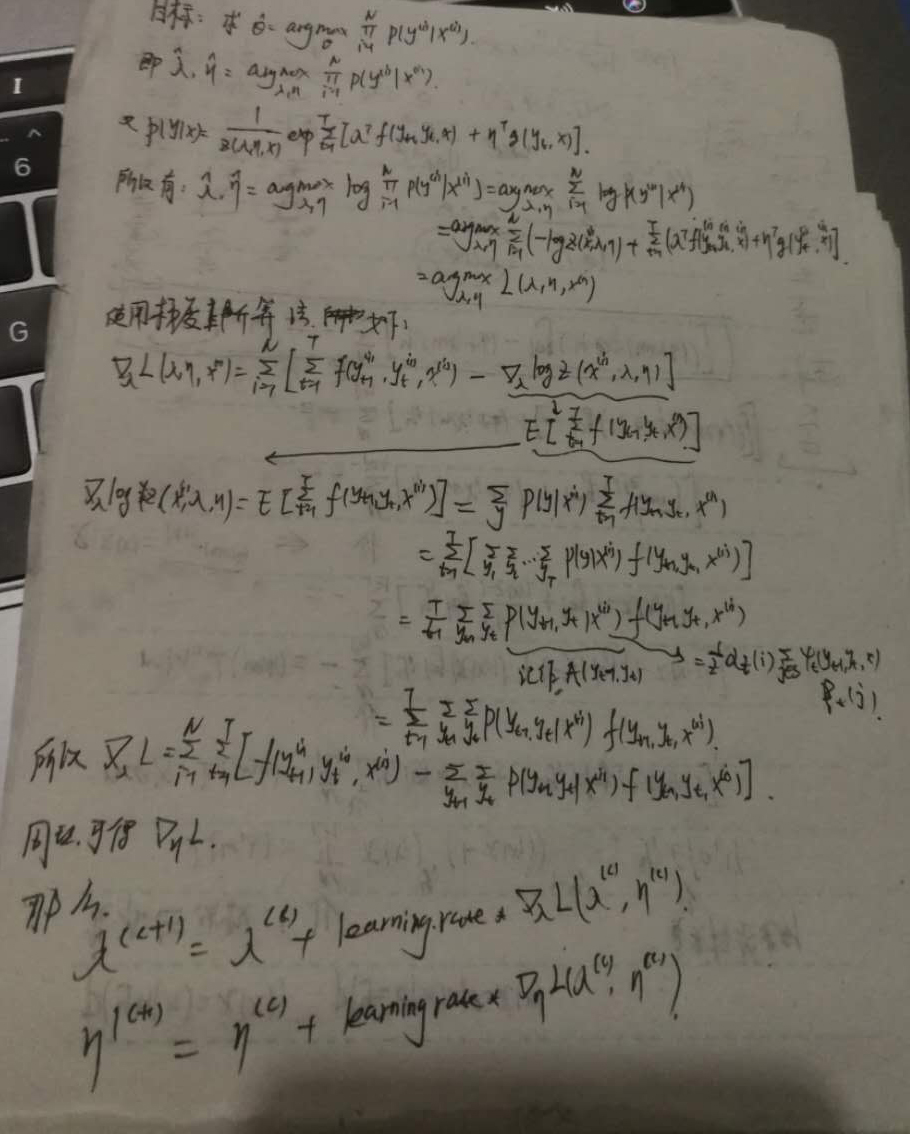 目标: 求 θ̂ = argmax_θ ∏_{i=1}^N P(y^(i)|x^(i)).
即 λ̂, η̂ = argmax_{λ,η} ∏_{i=1}^N P(y^(i)|x^(i)).
又 P(y|x) = 1/z(λ,η,x) exp ∑_{t=1}^T [λ^T f(y_{t-1}, y_t, x) + η^T g(y_t, x)].
所以有: λ̂, η̂ = argmax_{λ,η} log ∏_{i=1}^N P(y^(i)|x^(i)) = argmax_{λ,η} ∑_{i=1}^N log P(y^(i)|x^(i))
= argmax_{λ,η} ∑_{i=1}^N (-log z(x^(i),λ,η) + ∑_{t=1}^T (λ^T f(y_{t-1}^(i), y_t^(i), x^(i)) + η^T g(y_t^(i), x^(i))].
= argmax_{λ,η} L(λ, η, x^(i))
使用梯度 算法 如下:
∇_λ L(λ,η,x^(i)) = ∑_{i=1}^N [∑_{t=1}^T f(y_{t-1}^(i), y_t^(i), x^(i)) - ∇_λ log z(x^(i), λ, η)]
E[∑_{t=1}^T f(y_{t-1}, y_t, x^(i))]
∇_λ log z(x^(i), λ, η) = E[∑_{t=1}^T f(y_{t-1}, y_t, x^(i))] = ∑_y P(y|x^(i)) ∑_{t=1}^T f(y_{t-1}, y_t, x^(i))
= ∑_{t=1}^T [∑_{y_1} ∑_{y_2} ... ∑_{y_T} P(y|x^(i)) f(y_{t-1}, y_t, x^(i))]
= ∑_{t=1}^T ∑_{y_{t-1}} ∑_{y_t} P(y_{t-1}, y_t|x^(i)) f(y_{t-1}, y_t, x^(i))
记作 A(y_{t-1}, y_t)
= ∑_{t=1}^T ∑_{y_{t-1}} ∑_{y_t} P(y_{t-1}, y_t|x^(i)) f(y_{t-1}, y_t, x^(i)).
所以 ∇_λ L = ∑_{i=1}^N ∑_{t=1}^T [f(y_{t-1}^(i), y_t^(i), x^(i)) - ∑_{y_{t-1}} ∑_{y_t} P(y_{t-1}, y_t|x^(i)) f(y_{t-1}, y_t, x^(i))].
同理. 可得 ∇_η L.
那么.
λ^(t+1) = λ^(t) + learning.rate * ∇_λ L(λ^(t), η^(t)).
η^(t+1) = η^(t) + learning rate * ∇_η L(λ^(t), η^(t)).
I
^
6
G